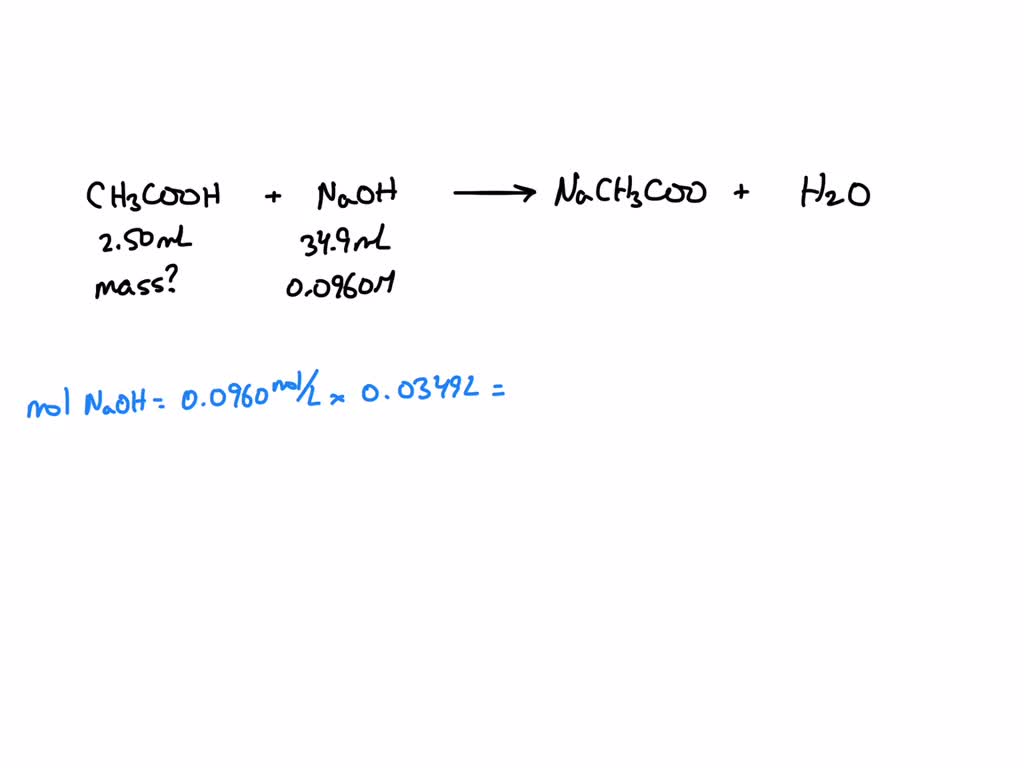 CH3COOH + NaOH → NaCH3COO + H2O
2.50mL 34.9mL
mass? 0.0960M
mol NaOH = 0.0960 mol/L × 0.0349L =